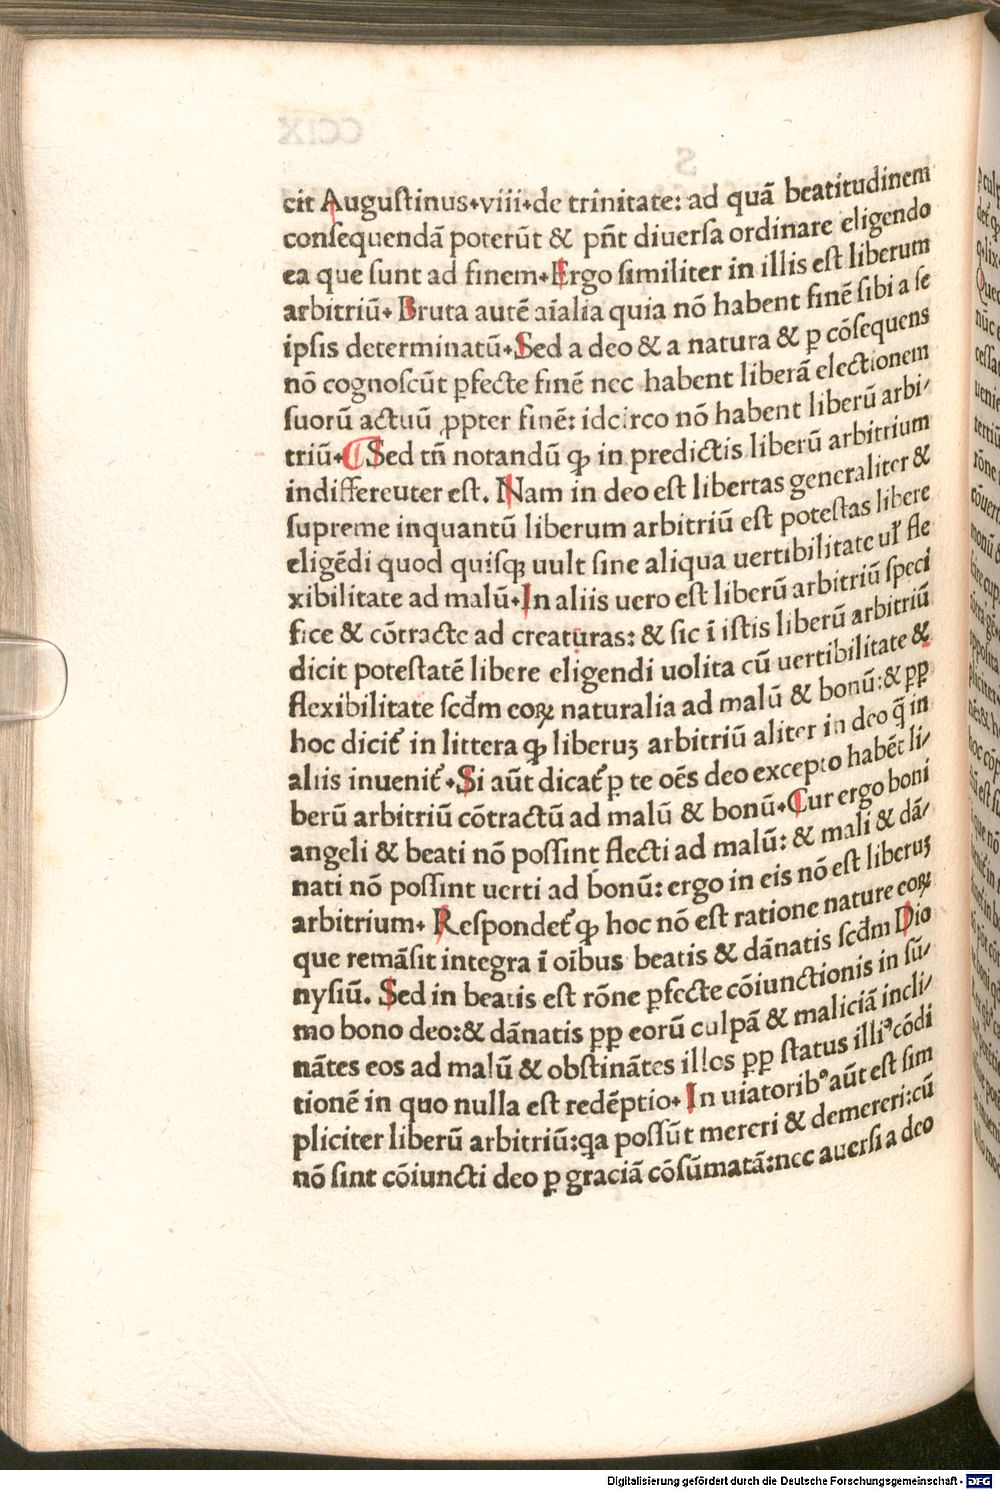 cit Augustinus.viii.de trinitate: ad quā beatitudinem
consequendā poterūt & pn̄t diuersa ordinare eligendo
ea que sunt ad finem.Ergo similiter in illis est liberum
arbitriū. Bruta autē aīalia quia nō habent finē sibi a se
ipsis determinatū.Sed a deo & a natura & ꝑ cōsequens
nō cognoscūt ꝑfecte finē nec habent liberā electionem
suorū actuū ꝓpter finē: idcirco nō habent liberū arbi/
triū.Sed tn̄ notandū ꝙ in predictis liberū arbitrium
indiffereuter est. Nam in deo est libertas generaliter &
supreme inquantū liberum arbitriū est potestas libere
eligēdi quod quisqꝫ uult sine aliqua uertibilitate ul̓ fle
xibilitate ad malū.In aliis uero est liberū arbitriū speci
fice & cōtracte ad creaturas: & sic ī istis liberū arbitriū
dicit potestatē libere eligendi uolita cū uertibilitate &
flexibilitate scd̄m eoꝝ naturalia ad malū & bonū:& ꝓp̄
hoc dicit̓ in littera ꝙ liberuꝫ arbitriū aliter in deo q̄ in
aliis inuenit̓.Si aūt dicat̓ ꝑ te oēs deo excepto habēt li/
berū arbitriū cōtractū ad malū & bonū.Cur ergo boni
angeli & beati nō possint flecti ad malū: & mali & dā/
nati nō possint uerti ad bonū: ergo in eis nō est liberuꝫ
arbitrium. Respondet̓ ꝙ hoc nō est ratione nature eoꝝ
que remāsit integra ī oībus beatis & dānatis scd̄m Dio
nysiū. Sed in beatis est rōne ꝑfecte cōiunctionis in sū/
mo bono deo:& dānatis ꝓp̄ eorū culpā & maliciā incli/
nātes eos ad malū & obstinātes illos ꝓp̄ status illiꝰ cōdi
tionē in quo nulla est redēptio. In uiatoribꝰ aūt est sim
pliciter liberū arbitriū:qa possūt mereri & demereri:cū
nō sint cōiuncti deo ꝑ graciā cōsūmatā:nec auersi a deo
Digitalisierung gefördert durch die Deutsche Forschungsgemeinschaft - DFG